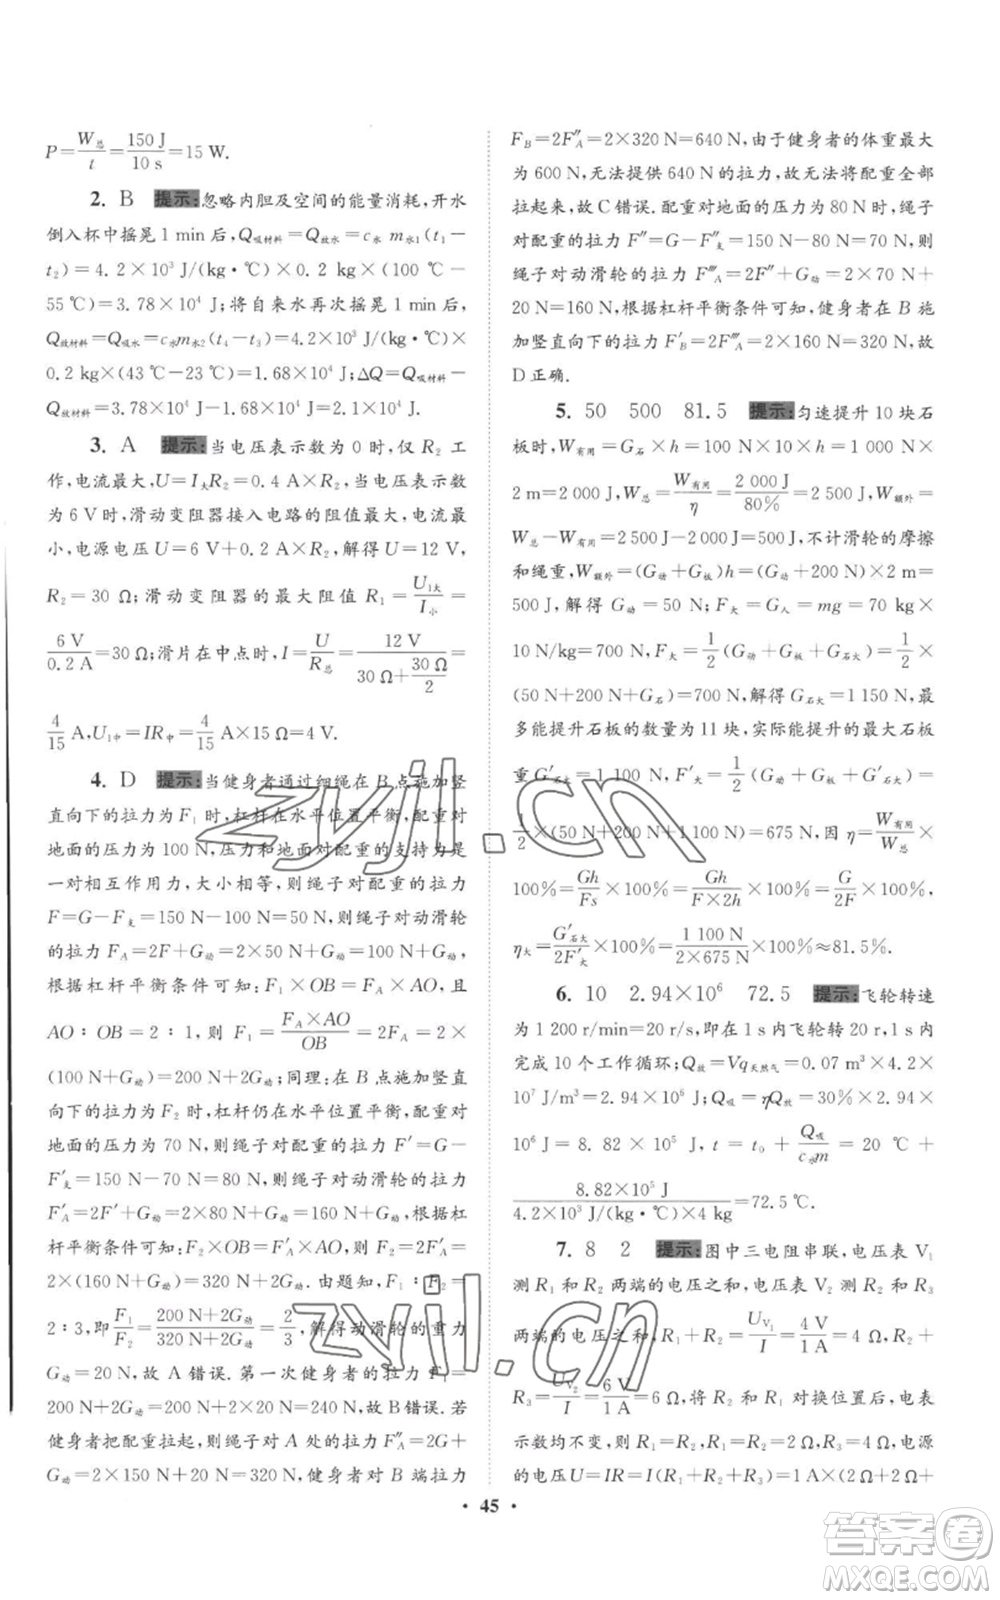 P=W总/t=150 J/10 s=15 W.
2. B 提示:忽略内胆及空间的能量消耗,开水
倒入杯中摇晃 1 min 后,Q吸材料=Q放水=c水 m水1(t₁−
t₂)=4.2×10³ J/(kg·℃)×0.2 kg×(100 ℃−
55 ℃)=3.78×10⁴ J;将自来水再次摇晃 1 min 后,
Q放材料=Q吸水=c水m水2(t₄−t₃)=4.2×10³ J/(kg·℃)×
0.2 kg×(43 ℃−23 ℃)=1.68×10⁴ J;ΔQ=Q吸材料−
Q放材料=3.78×10⁴ J−1.68×10⁴ J=2.1×10⁴ J.
3. A 提示:当电压表示数为 0 时,仅 R₂ 工
作,电流最大,U=I大R₂=0.4 A×R₂,当电压表示数
为 6 V 时,滑动变阻器接入电路的阻值最大,电流最
小,电源电压 U=6 V+0.2 A×R₂,解得 U=12 V,
R₂=30 Ω;滑动变阻器的最大阻值 R₁=U₁大/I小=
6 V/0.2 A=30 Ω;滑片在中点时,I=U/R总=12 V/(30 Ω+30 Ω/2)=
4/15 A,U₁中=IR中=4/15 A×15 Ω=4 V.
4. D 提示:当健身者通过细绳在 B 点施加竖
直向下的拉力为 F₁ 时,杠杆在水平位置平衡,配重对
地面的压力为 100 N,压力和地面对配重的支持力是
一对相互作用力,大小相等,则绳子对配重的拉力
F=G−F支=150 N−100 N=50 N,则绳子对动滑轮
的拉力 F_A=2F+G动=2×50 N+G动=100 N+G动,
根据杠杆平衡条件可知:F₁×OB=F_A×AO,且
AO∶OB=2∶1,则 F₁=F_A×AO/OB=2F_A=2×
(100 N+G动)=200 N+2G动;同理:在 B 点施加竖直
向下的拉力为 F₂ 时,杠杆仍在水平位置平衡,配重对
地面的压力为 70 N,则绳子对配重的拉力 F′=G−
F′支=150 N−70 N=80 N,则绳子对动滑轮的拉力
F′_A=2F′+G动=2×80 N+G动=160 N+G动,根据杠
杆平衡条件可知:F₂×OB=F′_A×AO,则 F₂=2F′_A=
2×(160 N+G动)=320 N+2G动.由题知,F₁∶F₂=
2∶3,即F₁/F₂=(200 N+2G动)/(320 N+2G动)=2/3,解得动滑轮的重力
G动=20 N,故 A 错误.第一次健身者的拉力 F₁=
200 N+2G动=200 N+2×20 N=240 N,故 B 错误.若
健身者将配重拉起,则绳子对 A 处的拉力 F″_A=2G+
G动=2×150 N+20 N=320 N,健身者对 B 端拉力
F_B=2F″_A=2×320 N=640 N,由于健身者的体重最大
为 600 N,无法提供 640 N 的拉力,故无法将配重全部
拉起来,故 C 错误.配重对地面的压力为 80 N 时,绳子
对配重的拉力 F″=G−F″支=150 N−80 N=70 N,则
绳子对动滑轮的拉力 F‴_A=2F″+G动=2×70 N+
20 N=160 N,根据杠杆平衡条件可知,健身者在 B 施
加竖直向下的拉力 F′_B=2F‴_A=2×160 N=320 N,故
D 正确.
5. 50 500 81.5 提示:匀速提升 10 块石
板时,W有用=G石×h=100 N×10×h=1 000 N×
2 m=2 000 J,W总=W有用/η=2 000 J/80%=2 500 J,W额外=
W总−W有用=2 500 J−2 000 J=500 J,不计滑轮的摩擦
和绳重,W额外=(G动+G板)h=(G动+200 N)×2 m=
500 J,解得 G动=50 N;F大=G人=mg=70 kg×
10 N/kg=700 N,F大=1/2(G动+G板+G石大)=1/2×
(50 N+200 N+G石)=700 N,解得 G石大=1 150 N,最
多能提升石板的数量为 11 块,实际能提升的最大石板
重G′石大=1 100 N,F′大=1/2(G动+G板+G′石大)=
1/2×(50 N+200 N+1 100 N)=675 N,因 η=W有用/W总×
100%=Gh/Fs×100%=Gh/(F×2h)×100%=G/2F×100%,
η大=G′石大/2F′大×100%=1 100 N/(2×675 N)×100%≈81.5%.
6. 10 2.94×10⁶ 72.5 提示:飞轮转速
为 1 200 r/min=20 r/s,即在 1 s 内飞轮转 20 r,1 s 内
完成 10 个工作循环;Q放=Vq天然气=0.07 m³×4.2×
10⁷ J/m³=2.94×10⁶ J,Q吸=ηQ放=30%×2.94×
10⁶ J=8.82×10⁵ J,t=t₀+Q吸/c水m=20 ℃+
8.82×10⁵ J/(4.2×10³ J/(kg·℃)×4 kg)=72.5 ℃.
7. 8 2 提示:图中三电阻串联,电压表 V₁
测 R₁ 和 R₂ 两端的电压之和,电压表 V₂ 测 R₂ 和 R₃
两端的电压之和,R₁+R₂=U_V₁/I=4 V/1 A=4 Ω,R₂+
R₃=U_V₂/I=6 V/1 A=6 Ω,将 R₂ 和 R₁ 对换位置后,电表
示数均不变,则 R₁=R₂=2 Ω,R₃=4 Ω,电源
的电压U=IR=I(R₁+R₂+R₃)=1 A×(2 Ω+2 Ω+
• 45 •
zyjl.cn
zyjl.cn
答案卷
MXQE.COM